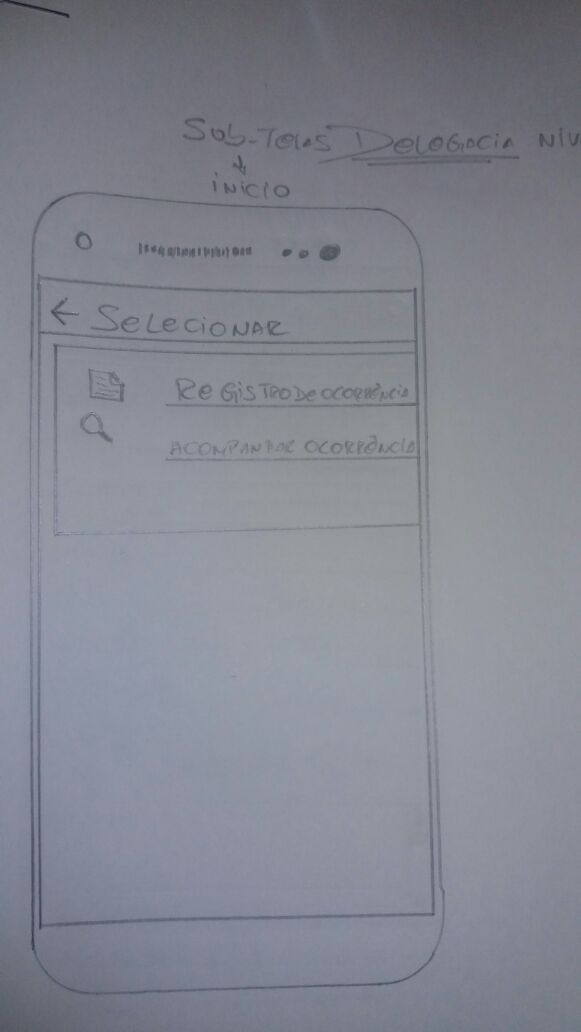 Sub-Telas Delegacia NIV
INICIO
Selecionar
Registro de ocorrência
Aconpanhar ocorrência